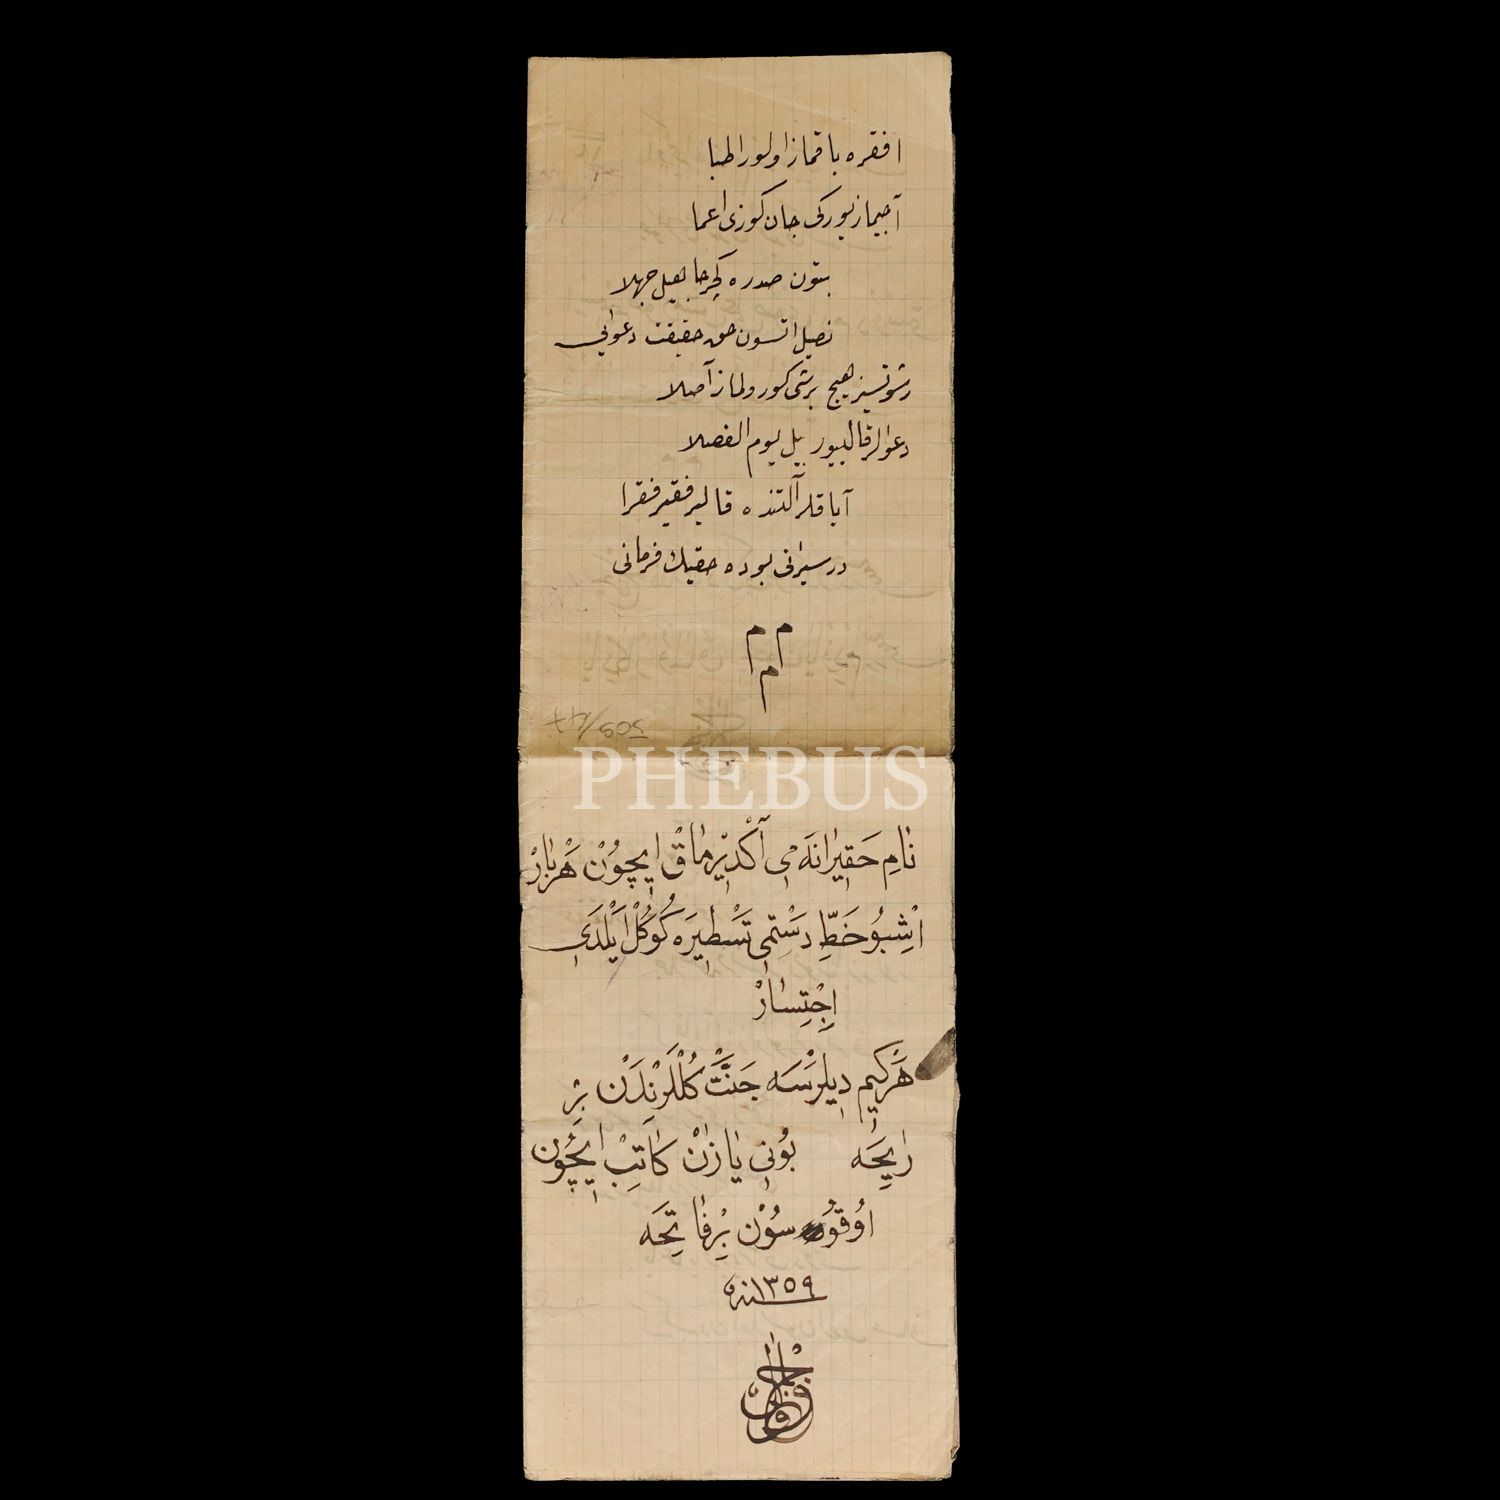 افقره باقماز اولور اطبا
آجیماز یورکی جان کوزی اعما
بتون صدره کچر جاهیل جهلا
نصیل اتسون حق حقیقت دعوایی
رشوتسیز هیچ برشی کورولماز آصلا
دعوالر قالییور بیل یوم الفصلا
آیاقلر آلتنده قالیر فقیر فقرا
در سیرانی بوده حقیك فرمانی
م م
م
309/147
PHEBUS
نَامِ حَقِیرَانَه مِی آڭدِیرْمَاقْ اِیچُوُنْ هَرْ بَارْ
اشبُو خَطِّ دَسْتِمِی تَسْطِیرَه کُوڭُلْ اَیْلَدِی
اِجْتِسَارْ
هَرْ کِیم دِیلَرْسَه جَنَّتْ کُلْلَرِنْدَنْ بِرْ
رَایِحَه بُونِی یَازَانْ کَاتِبْ اِیچُون
اوُقوُسوُنْ بِرْ فَاتِحَه
سنه ١٣٥٩